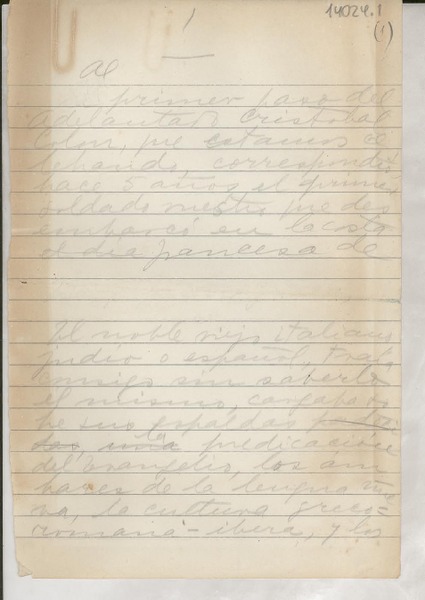 14024.1
(1)
1
Al
primer paso del
Adelantado Cristobal
Colon, que estamos ce
lebrando, correspondió
hace 5 años el primer
soldado nuestro que des
embarcó en la costa
el día francesa de
El noble viejo italiano
judio o español, traia
consigo sin saberlo
el mismo, cargaba so
bre sus espaldas
la predicación
del Evangelio, los
de la lengua nue
va, la cultura greco-
romana-ibera, y los